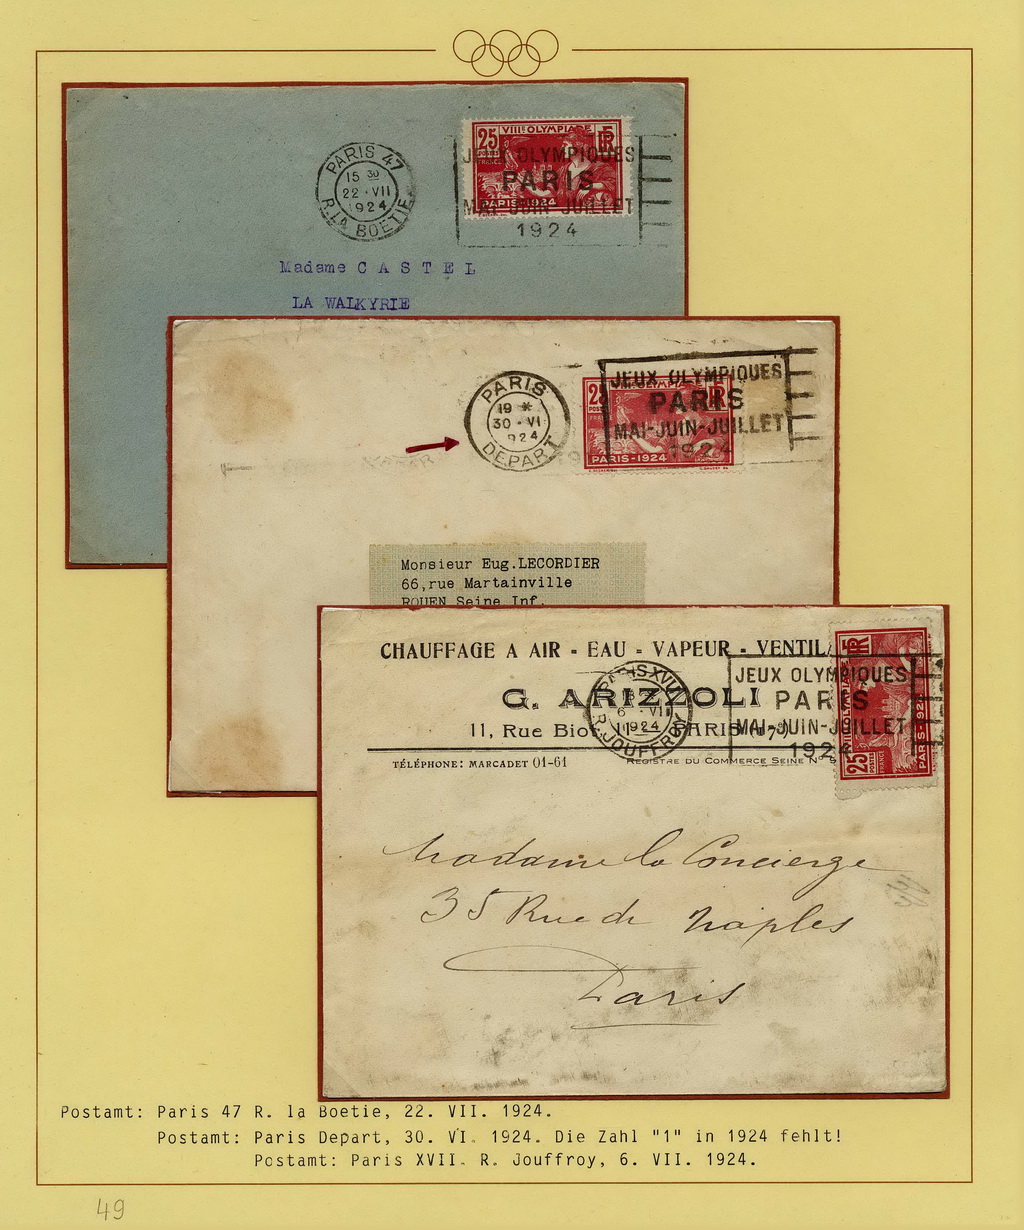 PARIS 47
15 30
22 · VII
1924
R. LA BOETIE
25 VIIIE OLYMPIADE
POSTES
FRANCE
PARIS-1924
JEUX OLYMPIQUES
PARIS
MAI-JUIN-JUILLET
1924
Madame C A S T E L
LA WALKYRIE
PARIS
19 *
30 - VI
924
DEPART
PARIS-1924
JEUX OLYMPIQUES
PARIS
MAI-JUIN-JUILLET
1924
Monsieur Eug.LECORDIER
66,rue Martainville
ROUEN Seine Inf.
CHAUFFAGE A AIR - EAU - VAPEUR - VENTIL
G. ARIZZOLI
11, Rue Bio PARIS (17e)
TÉLÉPHONE: MARCADET 01-61
REGISTRE DU COMMERCE SEINE No
PARIS XVII
6 · VII
1924
R. JOUFFROY
JEUX OLYMPIQUES
PARIS
MAI-JUIN-JUILLET
1924
25 POSTES FRANCE
PARIS-1924
Madame la Concierge
35 Rue de Naples
Paris
Postamt: Paris 47 R. la Boetie, 22. VII. 1924.
Postamt: Paris Depart, 30. VI. 1924. Die Zahl "1" in 1924 fehlt!
Postamt: Paris XVII. R. Jouffroy, 6. VII. 1924.
49